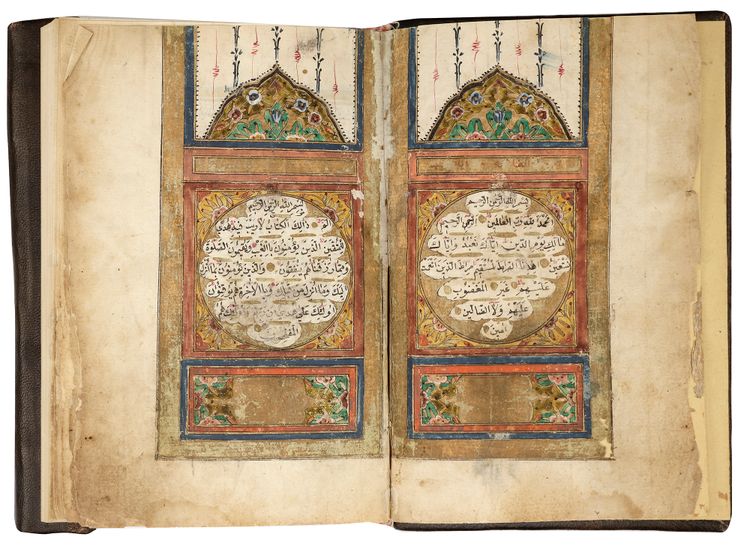 بسم الله الرحمن الرحيم
الحمد لله رب العالمين الرحمن الرحيم
مالك يوم الدين اياك نعبد واياك
نستعين اهدنا الصراط المستقيم صراط الذين انعمت
عليهم غير المغضوب
عليهم ولا الضالين
امين
بسم الله الرحمن الرحيم
الم ذالك الكتاب لا ريب فيه هدى
للمتقين الذين يؤمنون بالغيب ويقيمون الصلوة
ومما رزقناهم ينفقون والذين يؤمنون بما انزل
اليك وما انزل من قبلك وبالاخرة هم يوقنون
اولئك على هدى من ربهم واولئك هم
المفلحون